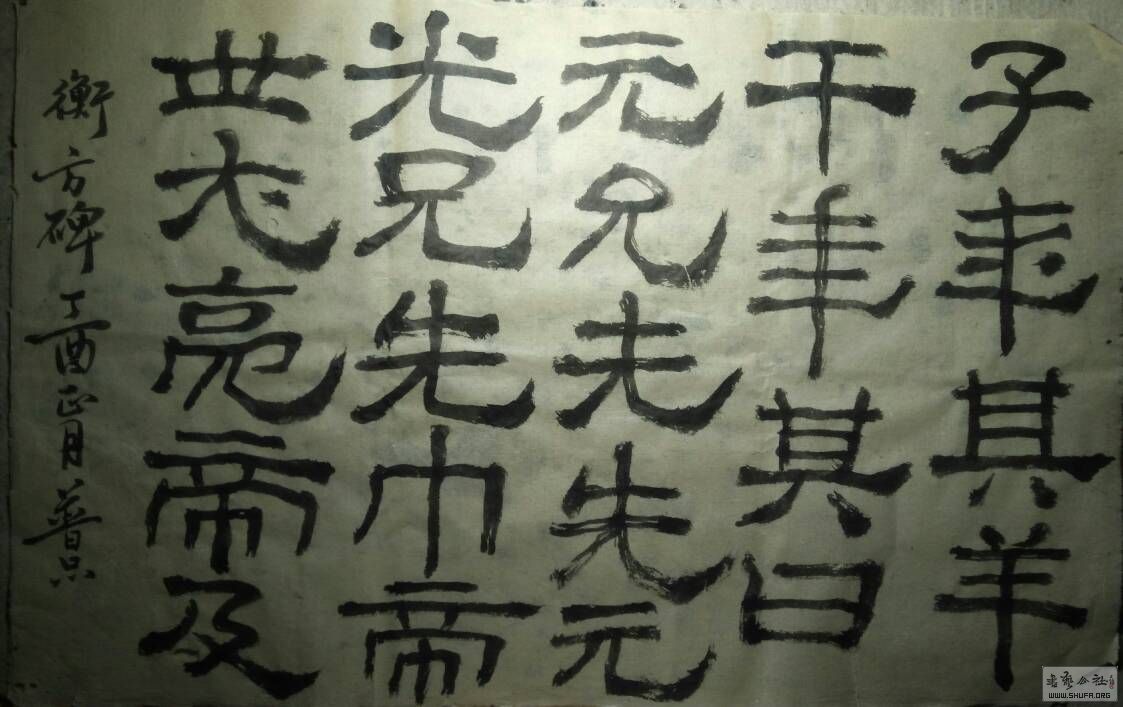 子其羊
干年其曰
元兄先元
光兄先巾帝
世亮帝及
衡方碑丁酉正月普
書藝公社
WWW.SHUFA.ORG